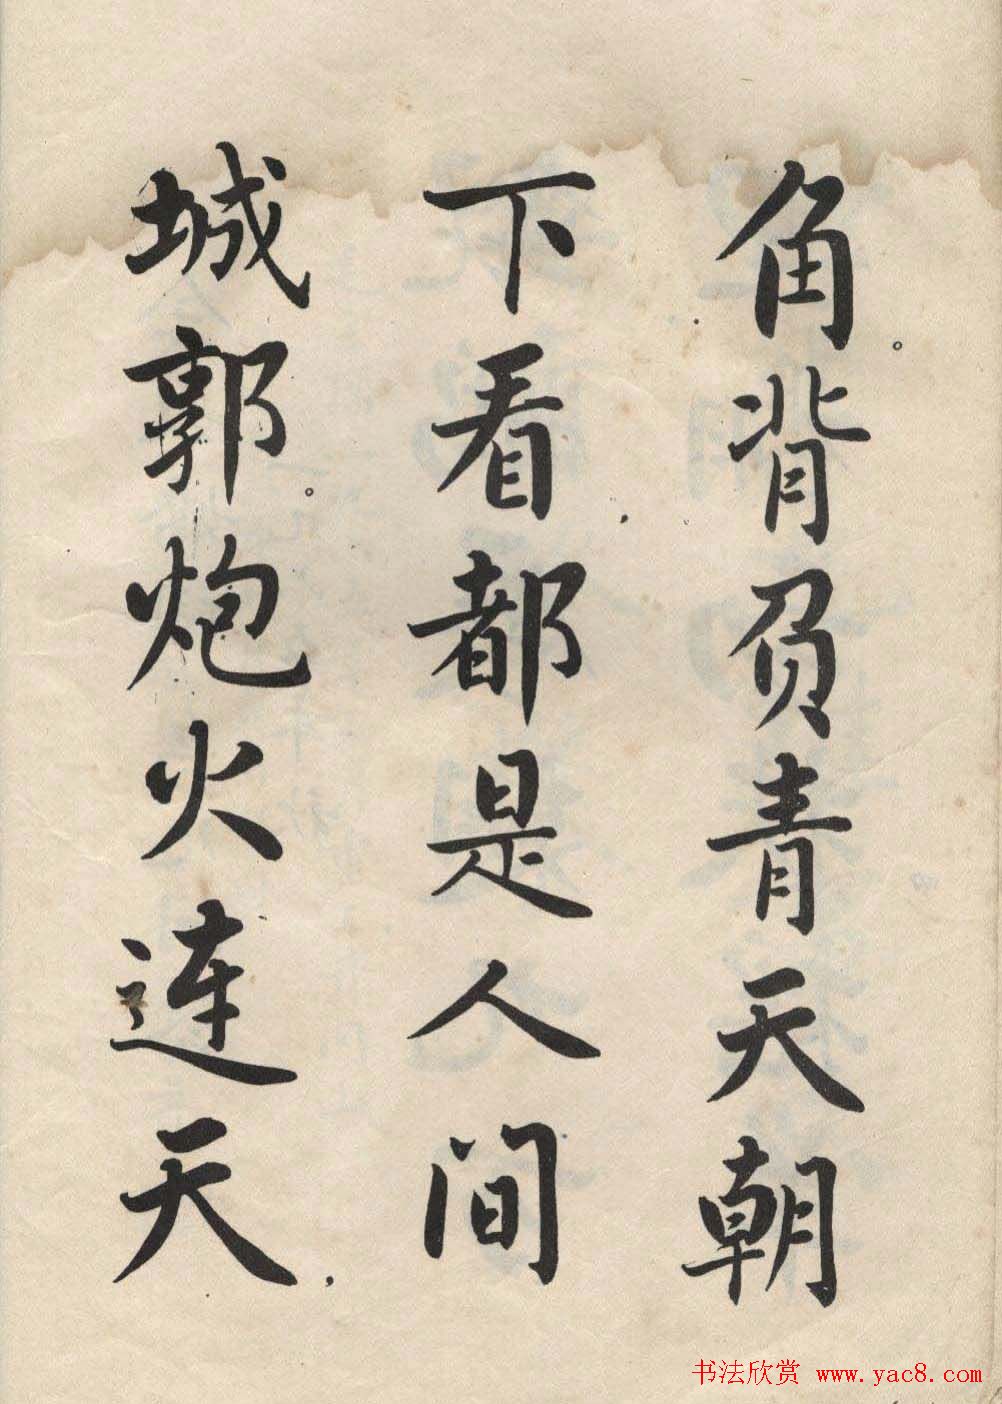 角。背负青天朝
下看，都是人间
城郭。炮火连天，
书法欣赏 www.yac8.com